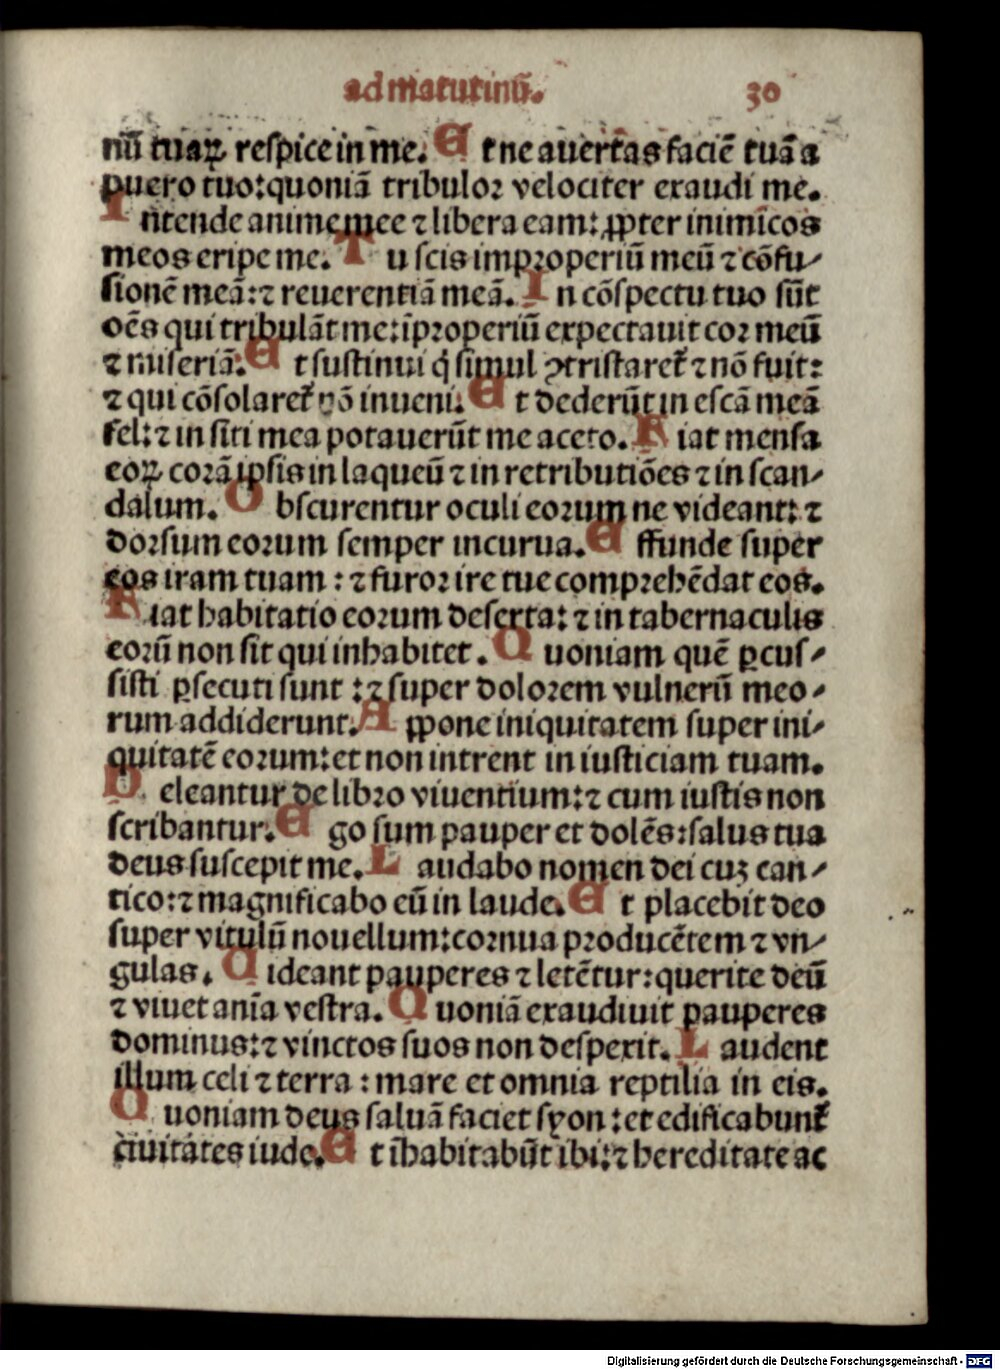 ad matutinū.
30
nū tuaꝝ respice in me. Et ne auertas faciē tuā a
puero tuo: quoniā tribulor velociter exaudi me.
Intende anime mee ⁊ libera eam: ꝓpter inimicos
meos eripe me. Tu scis improperiū meū ⁊ cōfu⸗
sionē meā: ⁊ reuerentiā meā. In cōspectu tuo sūt
oēs qui tribulāt me: īproperiū expectauit cor meū
⁊ miseriā. Et sustinui q̇ simul ꝯtristaret̄ ⁊ nō fuit:
⁊ qui cōsolaret̄ ⁊ nō inueni. Et dederūt in escā meā
fel: ⁊ in siti mea potauerūt me aceto. Fiat mensa
eoꝝ corā ipsis in laqueū ⁊ in retributiōes ⁊ in scan⸗
dalum. Obscurentur oculi eorum ne videant: ⁊
dorsum eorum semper incurua. Effunde super
eos iram tuam: ⁊ furor ire tue comprehēdat eos.
Fiat habitatio eorum deserta: ⁊ in tabernaculis
eorū non sit qui inhabitet. Quoniam quē ꝑcus⸗
sisti ꝑsecuti sunt: ⁊ super dolorem vulnerū meo⸗
rum addiderunt. Aꝓpone iniquitatem super ini⸗
quitatē eorum: et non intrent in iusticiam tuam.
Deleantur de libro viuentium: ⁊ cum iustis non
scribantur. Ego sum pauper et dolēs: salus tua
deus suscepit me. Laudabo nomen dei cuꝫ can⸗
tico: ⁊ magnificabo eū in laude. Et placebit deo
super vitulū nouellum: cornua producētem ⁊ vn⸗
gulas. Uideant pauperes ⁊ letētur: querite deū
⁊ viuet anīa vestra. Quoniā exaudiuit pauperes
dominus: ⁊ vinctos suos non despexit. Laudent
illum celi ⁊ terra: mare et omnia reptilia in eis.
Quoniam deus saluā faciet syon: et edificabunt̄
ciuitates iude. Et īhabitabūt ibi: ⁊ hereditate ac
Digitalisierung gefördert durch die Deutsche Forschungsgemeinschaft - DFG